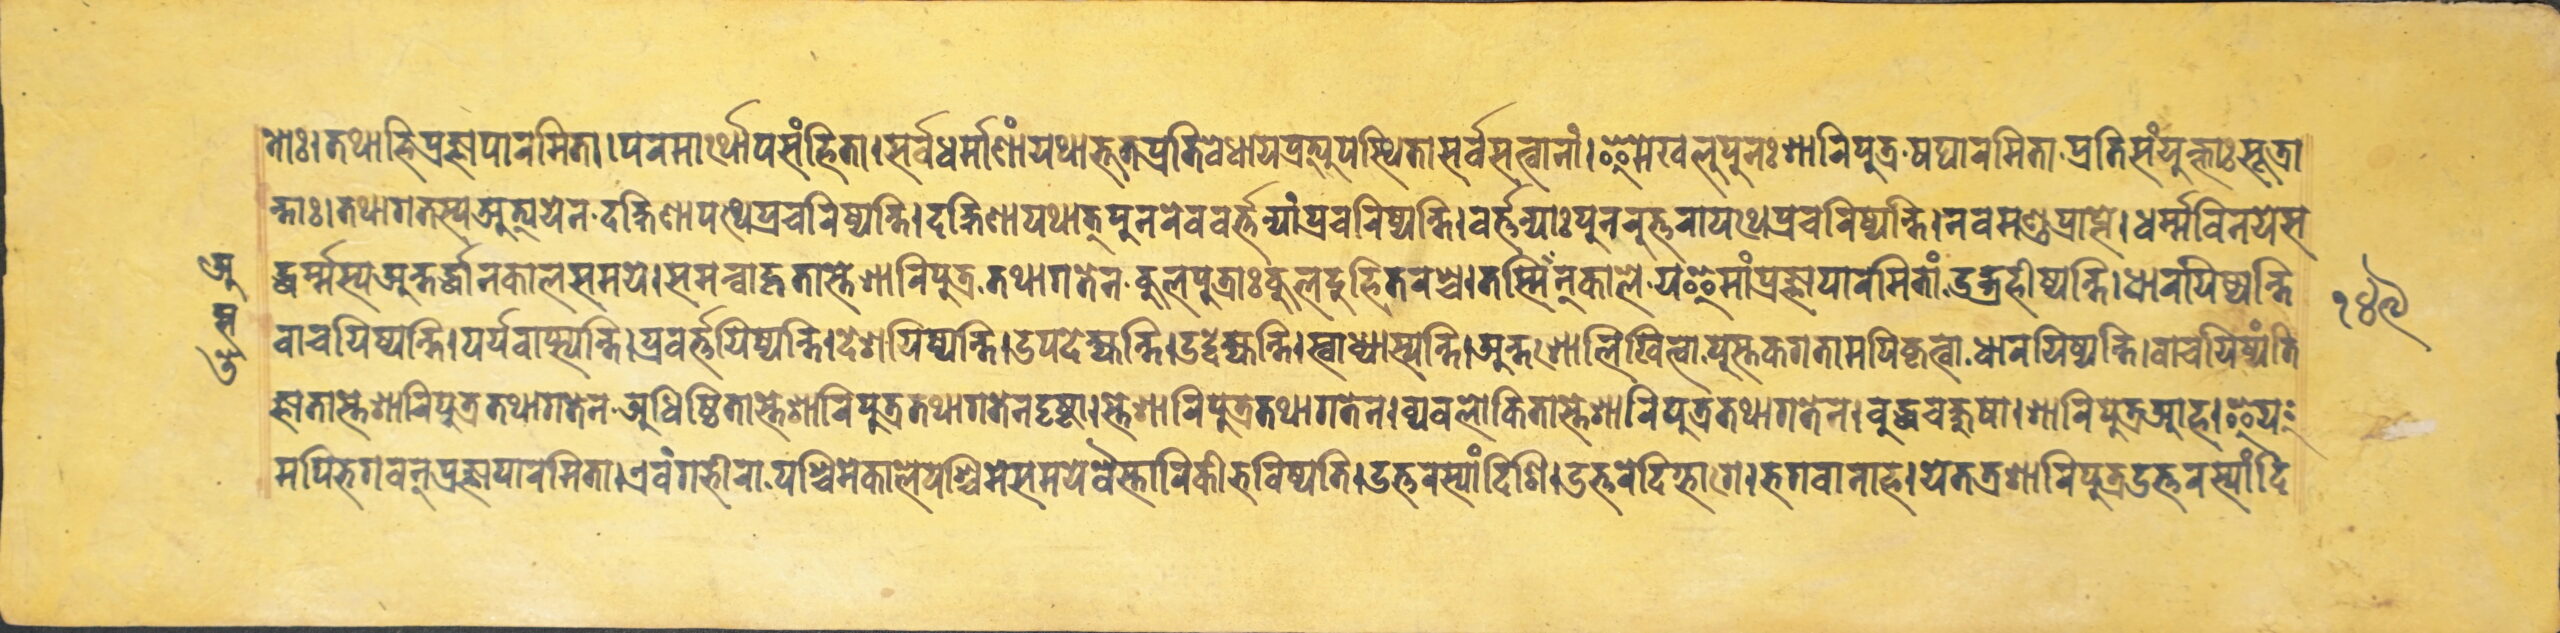 णाः।तथाहिप्रज्ञापारमिता।परमार्थोपसंहिता।सर्वधर्माणांयथाभूतप्रतिवेधायप्रत्युपस्थितासर्वसत्वानां।इमेखलुपुनःशारिपुत्र.षट्पारमिता.प्रतिसंयुक्ताःसूत्रा
न्ताः।तथागतस्यअत्ययेन.दक्षिणापथेप्रचरिष्यन्ति।दक्षिणापथात्पुनरेववर्त्तन्यांप्रचरिष्यन्ति।वर्त्तन्याःपुनरुत्तरापथेप्रचरिष्यन्ति।नवमण्डप्राप्ते।धर्म्मविनयेस
अ द्धर्म्मस्यअन्तर्द्धानकालसमये।समन्वाहृतास्तेशारिपुत्र.तथागतेन.कुलपुत्राःकुलदुहितरश्च।तस्मिंन्काले.यइमांप्रज्ञापारमितां.उद्ग्रहीष्यन्ति।धारयिष्यन्ति १४९
ष्ट वाचयिष्यन्ति।पर्यवाप्स्यन्ति।प्रवर्त्तयिष्यन्ति।देशयिष्यन्ति।उपदेक्ष्यन्ति।उद्देक्ष्यन्ति।स्वाध्यास्यन्ति।अन्तशोलिखित्वा.पुस्तकगतामपिकृत्वा.धारयिष्यन्ति।वाचयिष्यंति
ज्ञातास्तेशारिपुत्रतथागतेन.अधिष्ठितास्तेशारिपुत्रतथागतेनदृष्टा।स्तेशारिपुत्रतथागतेन।व्यवलोकितास्तेशारिपुत्रतथागतेन।बुद्धचक्षुषा।शारिपुत्रआह।इय
मपिभगवन्प्रज्ञापारमिता।एवंगम्भीरा.पश्चिमेकालेपश्चिमेसमयेवैस्तारिकीभविष्यति।उत्तरस्यांदिशि।उत्तरेदिग्भागे।भगवानाह।येतत्रशारिपुत्रउत्तरस्यांदि